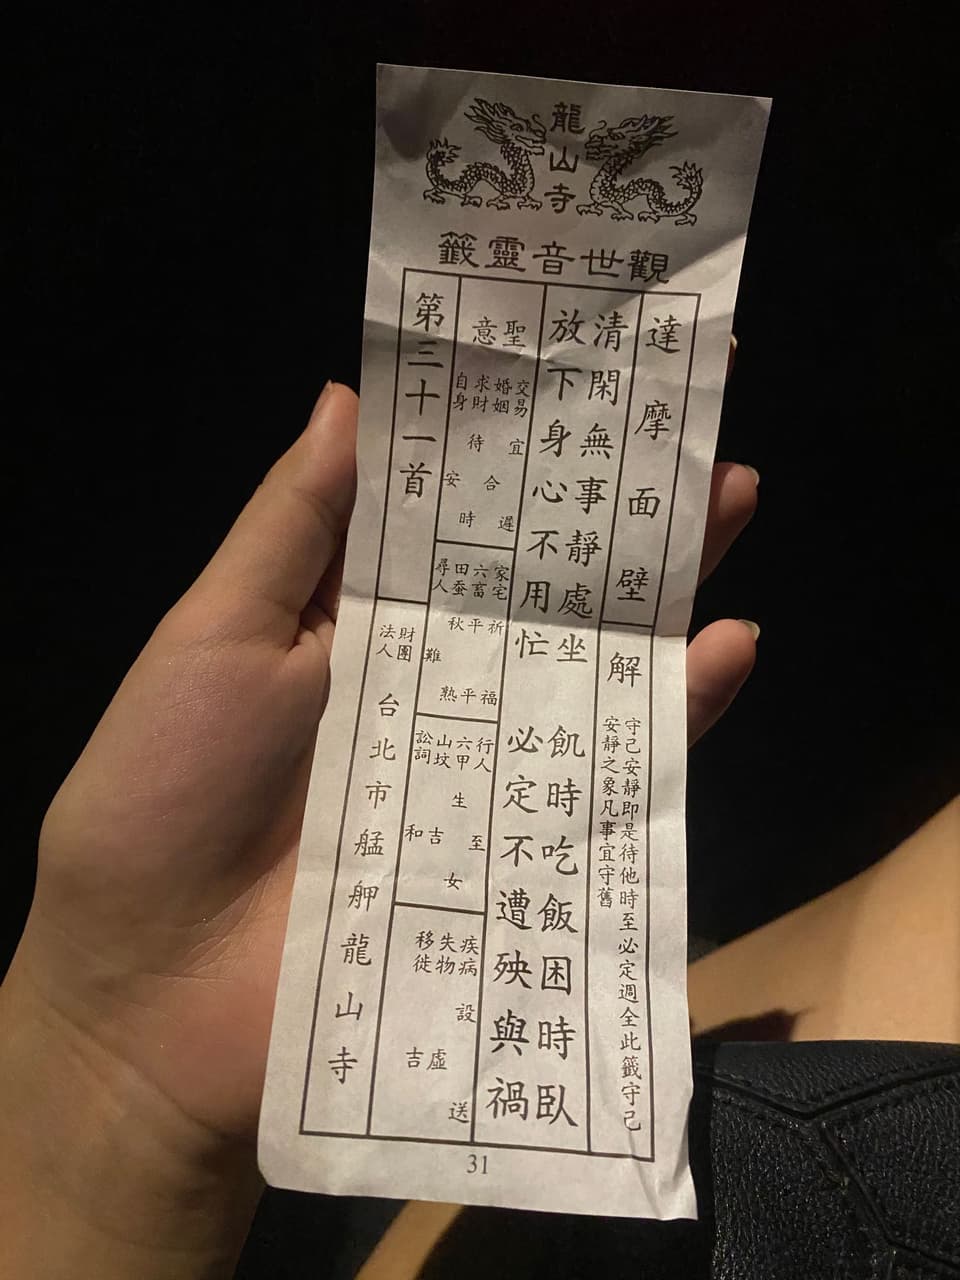 龍山寺
觀世音靈籤
達摩面壁
解
守己安靜即是待他時至必定週全此籤守己
安靜之象凡事宜守舊
清閑無事靜處坐 飢時吃飯困時臥
放下身心不用忙 必定不遭殃與禍
聖意
交易宜遲
婚姻合
求財待時
自身安
家宅祈福
六畜平平
田蚕秋熟
尋人難
行人至
六甲生女
山坟吉
訟詞和
疾病設送
失物虛
移徙吉
第三十一首
財團法人台北市艋舺龍山寺
31